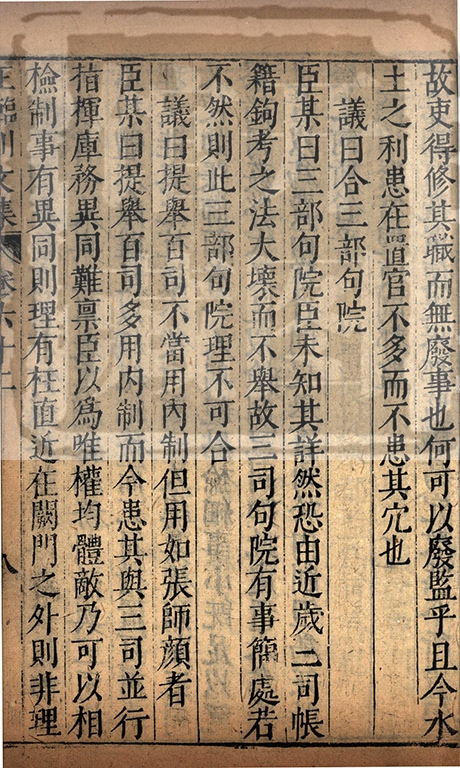 故吏得修其職而無廢事也何可以廢監乎且今水
土之利患在置官不多而不患其冗也
議曰合三部句院
臣某曰三部句院臣未知其詳然恐由近歲三司帳
籍鉤考之法大壞而不舉故三司句院有事簡處若
不然則此三部句院理不可合
議曰提舉百司不當用內制但用如張師顔者
臣某曰提舉百司多用內制而今患其與三司並行
指揮庫務異同難禀臣以為唯權均體敵乃可以相
檢制事有異同則理有枉直近在闕門之外則非理
王臨川文集 卷六十二 八